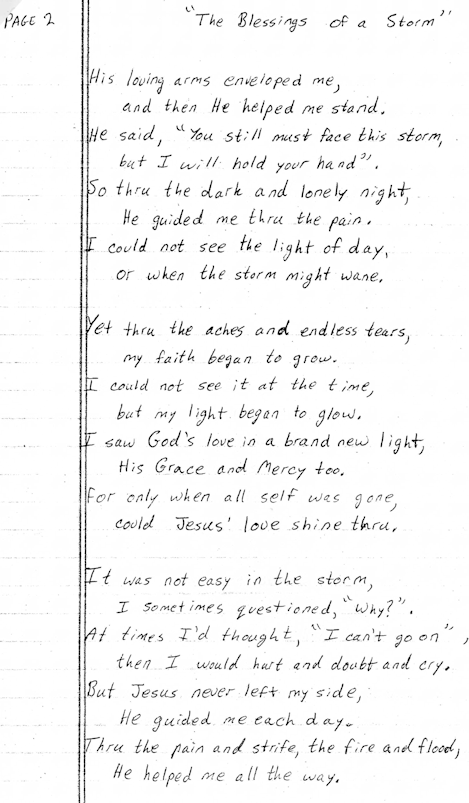 PAGE 2
"The Blessings of a Storm"
His loving arms enveloped me,
and then He helped me stand.
He said, "You still must face this storm,
but I will hold your hand".
So thru the dark and lonely night,
He guided me thru the pain.
I could not see the light of day,
or when the storm might wane.
Yet thru the aches and endless tears,
my faith began to grow.
I could not see it at the time,
but my light began to glow.
I saw God's love in a brand new light,
His Grace and Mercy too.
For only when all self was gone,
could Jesus' love shine thru.
It was not easy in the storm,
I sometimes questioned, "Why?".
At times I'd thought, "I can't go on",
then I would hurt and doubt and cry.
But Jesus never left my side,
He guided me each day.
Thru the pain and strife, the fire and flood,
He helped me all the way.